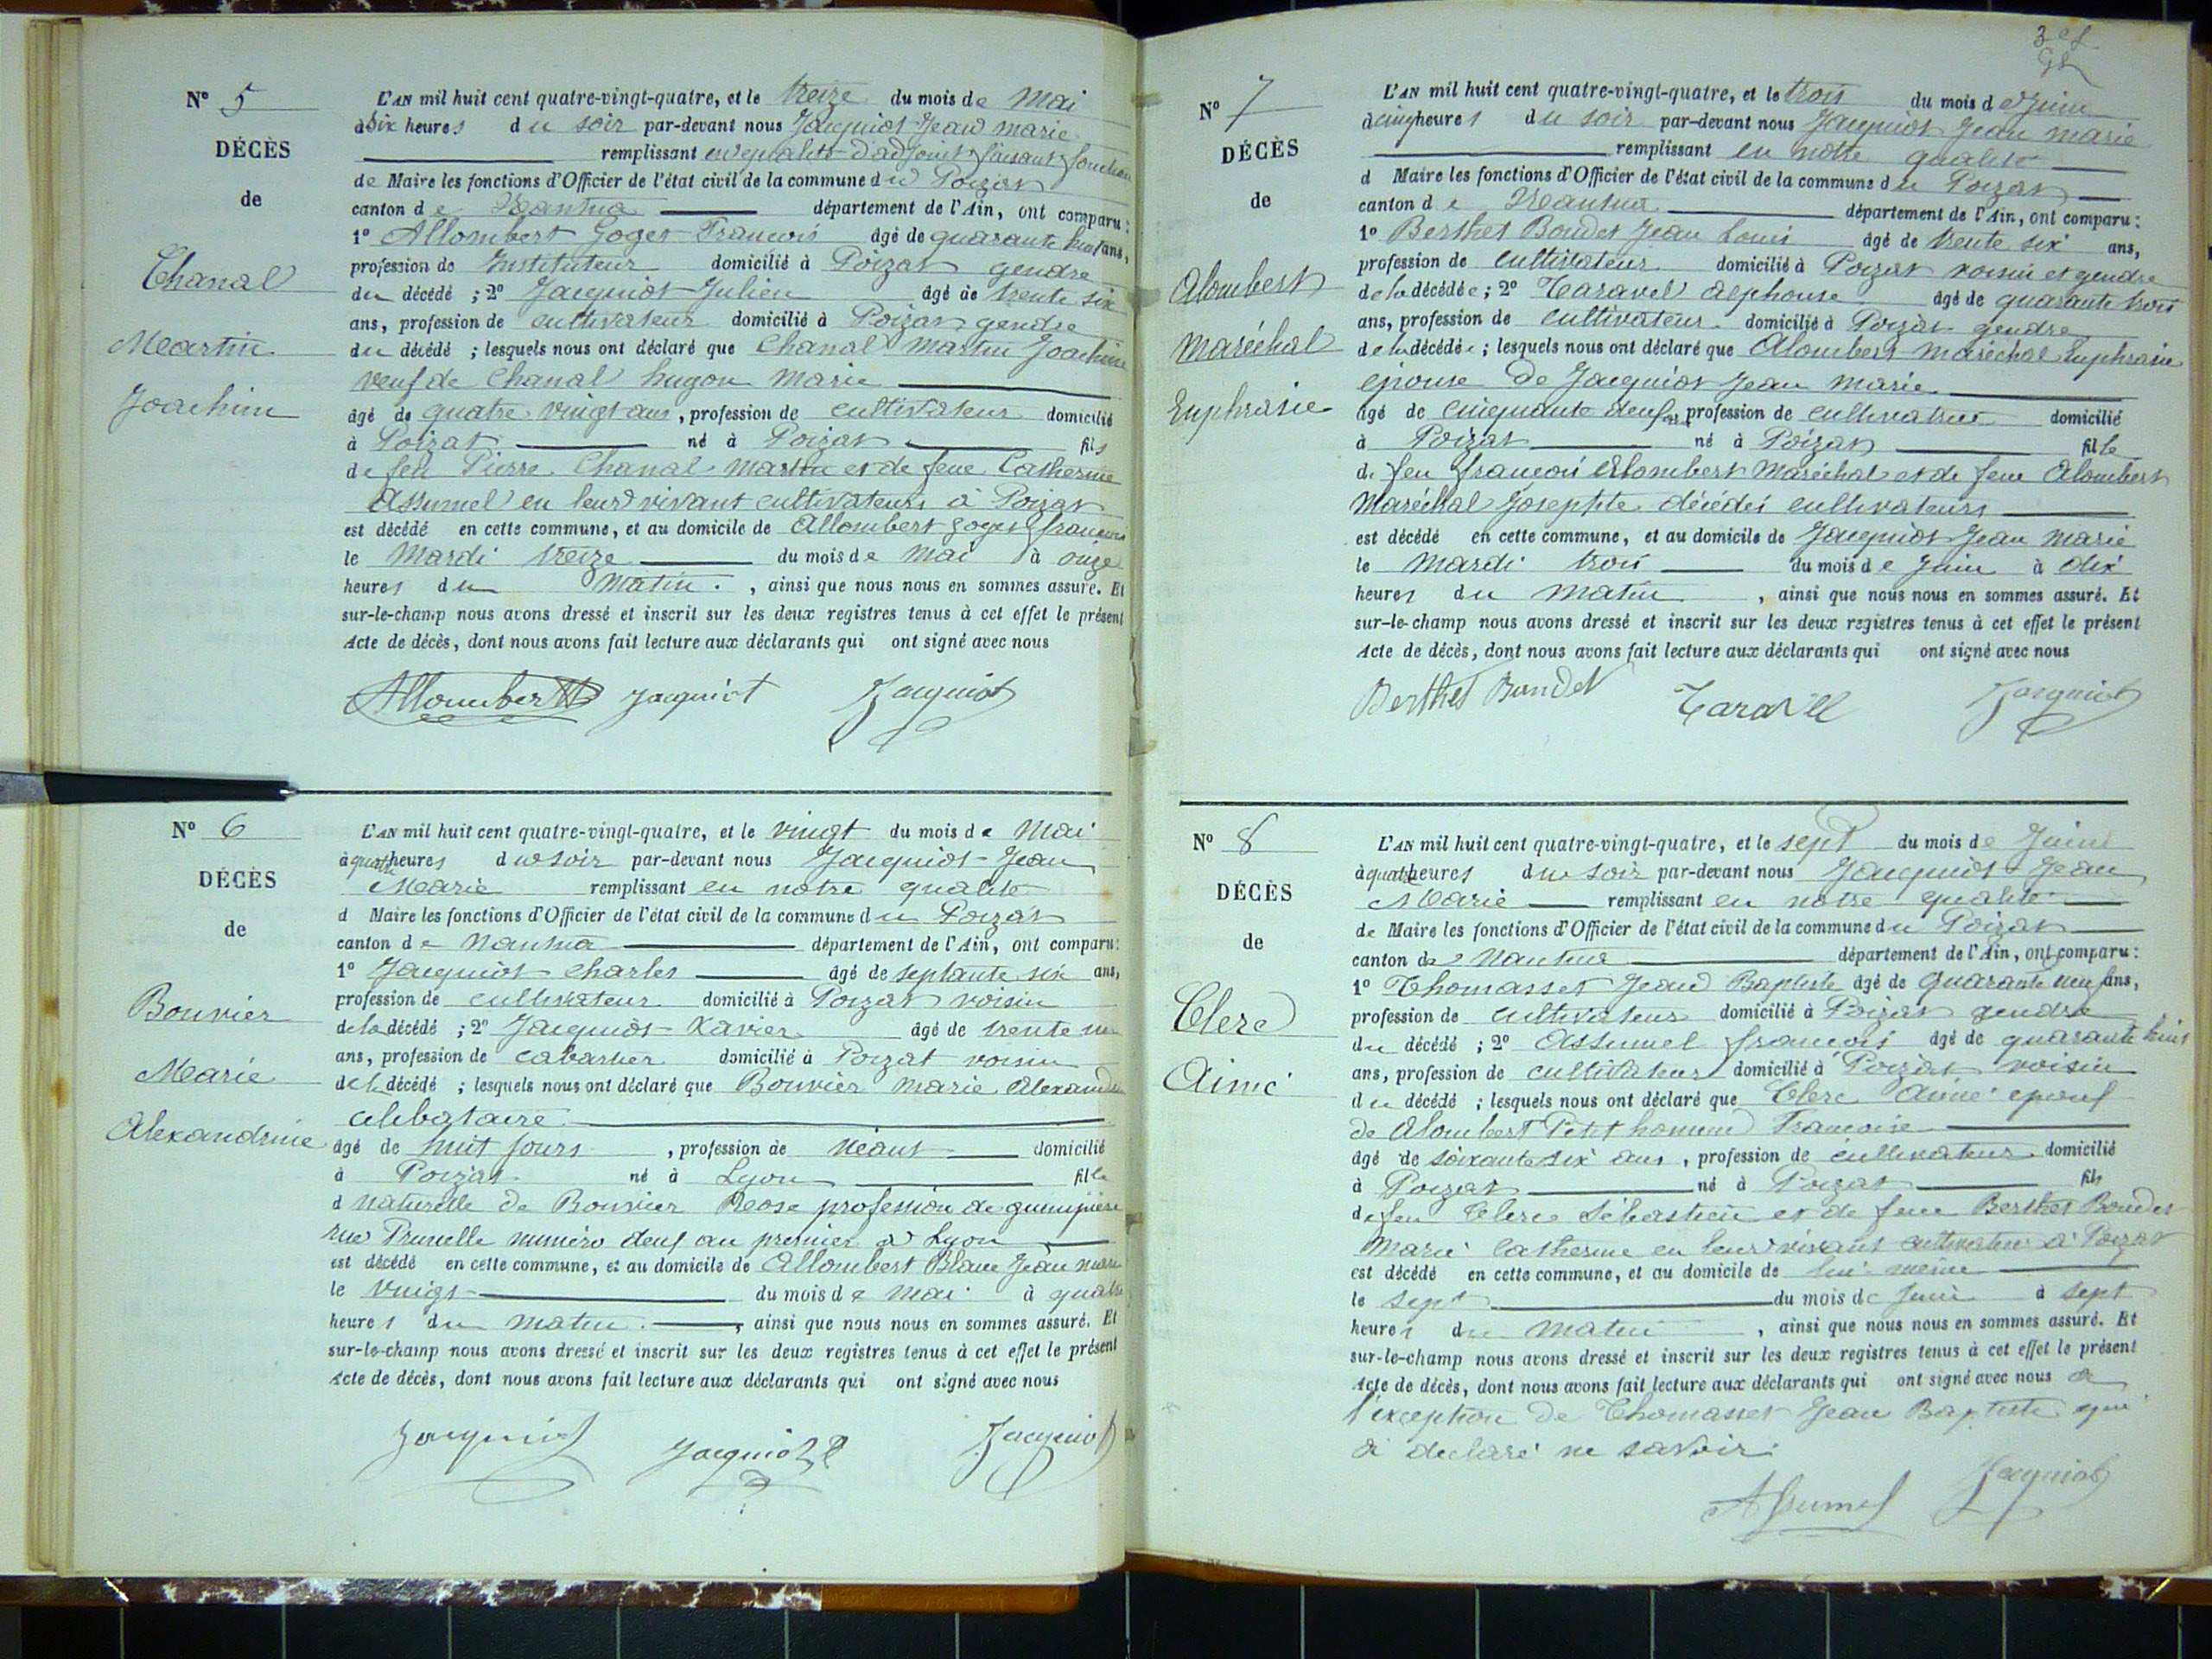 N° 5
DÉCÈS
de
Chanal
Martin
Joachim
L'AN mil huit cent quatre-vingt-quatre, et le treize du mois de Mai
à Six heures du soir par-devant nous Jacquiot Jean marie
remplissant en qualité d'adjoint faisant fonction
de Maire les fonctions d'Officier de l'état civil de la commune du Poizat
canton de Nantua département de l'Ain, ont comparu :
1° Allombert Goget Francois âgé de quarante huit ans,
profession de Instituteur domicilié à Poizat gendre
du décédé ; 2° Jacquiot Julien âgé de trente six
ans, profession de cultivateur domicilié à Poizat gendre
du décédé ; lesquels nous ont déclaré que Chanal Martin Joachim
veuf de Chanal hugon Marie
âgé de quatre vingt ans, profession de cultivateur domicilié
à Poizat né à Poizat fils
de feu Pierre Chanal Martin et de feue Catherine
Assumel en leur vivant cultivateurs à Poizat
est décédé en cette commune, et au domicile de Allombert goget francois
le Mardi treize du mois de Mai à onze
heures du Matin. , ainsi que nous nous en sommes assuré. Et
sur-le-champ nous avons dressé et inscrit sur les deux registres tenus à cet effet le présent
Acte de décès, dont nous avons fait lecture aux déclarants qui ont signé avec nous
Allombert Jacquiot Jacquiot
N° 6
DÉCÈS
de
Bouvier
Marie
Alexandrine
L'AN mil huit cent quatre-vingt-quatre, et le vingt du mois de Mai
à quatre heures du soir par-devant nous Jacquiot Jean
Marie remplissant en notre qualité
d Maire les fonctions d'Officier de l'état civil de la commune du Poizat
canton de Nantua département de l'Ain, ont comparu :
1° Jacquiot Charles âgé de septante six ans,
profession de cultivateur domicilié à Poizat voisin
de la décédé ; 2° Jacquiot Xavier âgé de trente un
ans, profession de cabartier domicilié à Poizat voisin
de la décédé ; lesquels nous ont déclaré que Bouvier Marie Alexandrine
celibataire
âgé de huit jours , profession de Néant domicilié
à Poizat né à Lyon fille
d naturelle de Bouvier Rose profession de guimpière
rue Prunelle numéro deux au premier à Lyon
est décédé en cette commune, et au domicile de Allombert Blanc Jean marie
le vingt du mois de Mai à quatre
heures du matin , ainsi que nous nous en sommes assuré. Et
sur-le-champ nous avons dressé et inscrit sur les deux registres tenus à cet effet le présent
Acte de décès, dont nous avons fait lecture aux déclarants qui ont signé avec nous
Jacquiot Jacquiot Jacquiot
N° 7
DÉCÈS
de
Alombert
Maréchal
Euphrasie
L'AN mil huit cent quatre-vingt-quatre, et le trois du mois de Juin
à cinq heures du soir par-devant nous Jacquiot Jean marie
remplissant en notre qualité
d Maire les fonctions d'Officier de l'état civil de la commune du Poizat
canton de Nantua département de l'Ain, ont comparu :
1° Berthet Boudet Jean Louis âgé de trente six ans,
profession de cultivateur domicilié à Poizat voisin et gendre
de la décédée ; 2° Taravel alphonse âgé de quarante trois
ans, profession de cultivateur domicilié à Poizat gendre
de la décédée ; lesquels nous ont déclaré que Alombert Maréchal Euphrasie
épouse de Jacquiot Jean Marie
âgé de cinquante deux ans profession de cultivatrice domicilié
à Poizat né à Poizat fille
de feu francois Alombert Maréchal et de feue Alombert
Maréchal Josephte décédés cultivateurs
est décédé en cette commune, et au domicile de Jacquiot Jean Marie
le Mardi trois du mois de Juin à dix
heures du Matin , ainsi que nous nous en sommes assuré. Et
sur-le-champ nous avons dressé et inscrit sur les deux registres tenus à cet effet le présent
Acte de décès, dont nous avons fait lecture aux déclarants qui ont signé avec nous
Berthet Bondet Taravell Jacquiot
N° 8
DÉCÈS
de
Clerc
Aimé
L'AN mil huit cent quatre-vingt-quatre, et le sept du mois de Juin
à quatre heures du soir par-devant nous Jacquiot Jean
Marie remplissant en notre qualité
de Maire les fonctions d'Officier de l'état civil de la commune du Poizat
canton de Nantua département de l'Ain, ont comparu :
1° Thomasset Jean Baptiste âgé de quarante neuf ans,
profession de cultivateur domicilié à Poizat gendre
du décédé ; 2° Assumel francois âgé de quarante huit
ans, profession de cultivateur domicilié à Poizat voisin
du décédé ; lesquels nous ont déclaré que Clerc Aimé epoux
de Alombert Petit homme Francoise
âgé de soixante six ans, profession de cultivateur domicilié
à Poizat né à Poizat fils
de feu Clerc Sébastien et de feue Berthet Boudet
Marie Catherine en leur vivant cultivateurs à Poizat
est décédé en cette commune, et au domicile de lui meme
le sept du mois de Juin à sept
heures du Matin , ainsi que nous nous en sommes assuré. Et
sur-le-champ nous avons dressé et inscrit sur les deux registres tenus à cet effet le présent
Acte de décès, dont nous avons fait lecture aux déclarants qui ont signé avec nous a
l'exception de Thomasset Jean Baptiste qui
a declaré ne savoir
Assumel Jacquiot